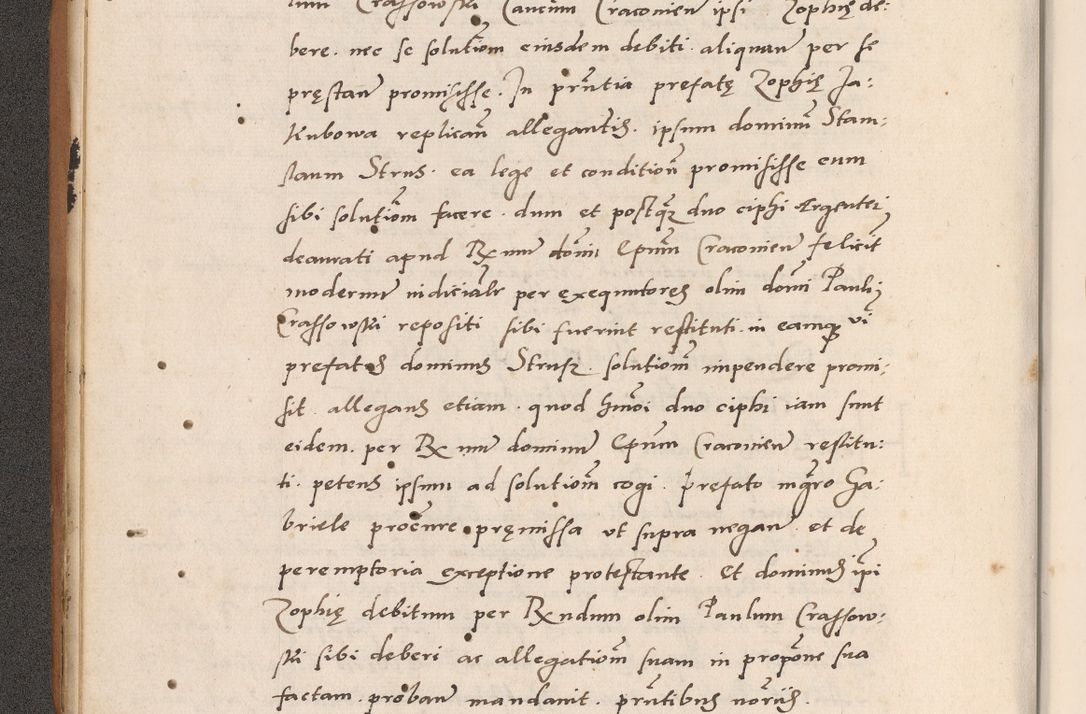 Crassowski Cancum Craconien ipsi Zophię de:
bere. nec se solutiom eiusdem debiti aliquam per se
pręstan promisisse. In prntia prefatę Zophię Ja:
kubowa replican allegantis. ipsum dominu Stani:
slaum Strus. ea lege et condition promisisse eum
sibi solutiom facere. dum et postqz duo ciphi Argentei
deaurati apud Rx mu domi Epum Craconien felicit
modernu iudicialr per exequutores olim domi Pauli
Crassowski repositi sibi fuerint restituti. in eamqz vi
prefatus dominus Strusz. solutiom impendere promi:
sit. allegans etiam. quod hmoi duo ciphi iam sunt
eidem. per Rx mu dominu Epum Craconien restitu:
ti. petens ipsum ad solutiom cogi. prefato mgro Ga:
briele procure pręmissa ut supra negan. et de
peremptoria exceptione protestante. Et dominus ipi
Zophię debitum per Rxndum olim Paulum Crassow:
ski sibi deberi ac allegatiom suam in propone sua
factam. proban mandauit. prntibus noriis.